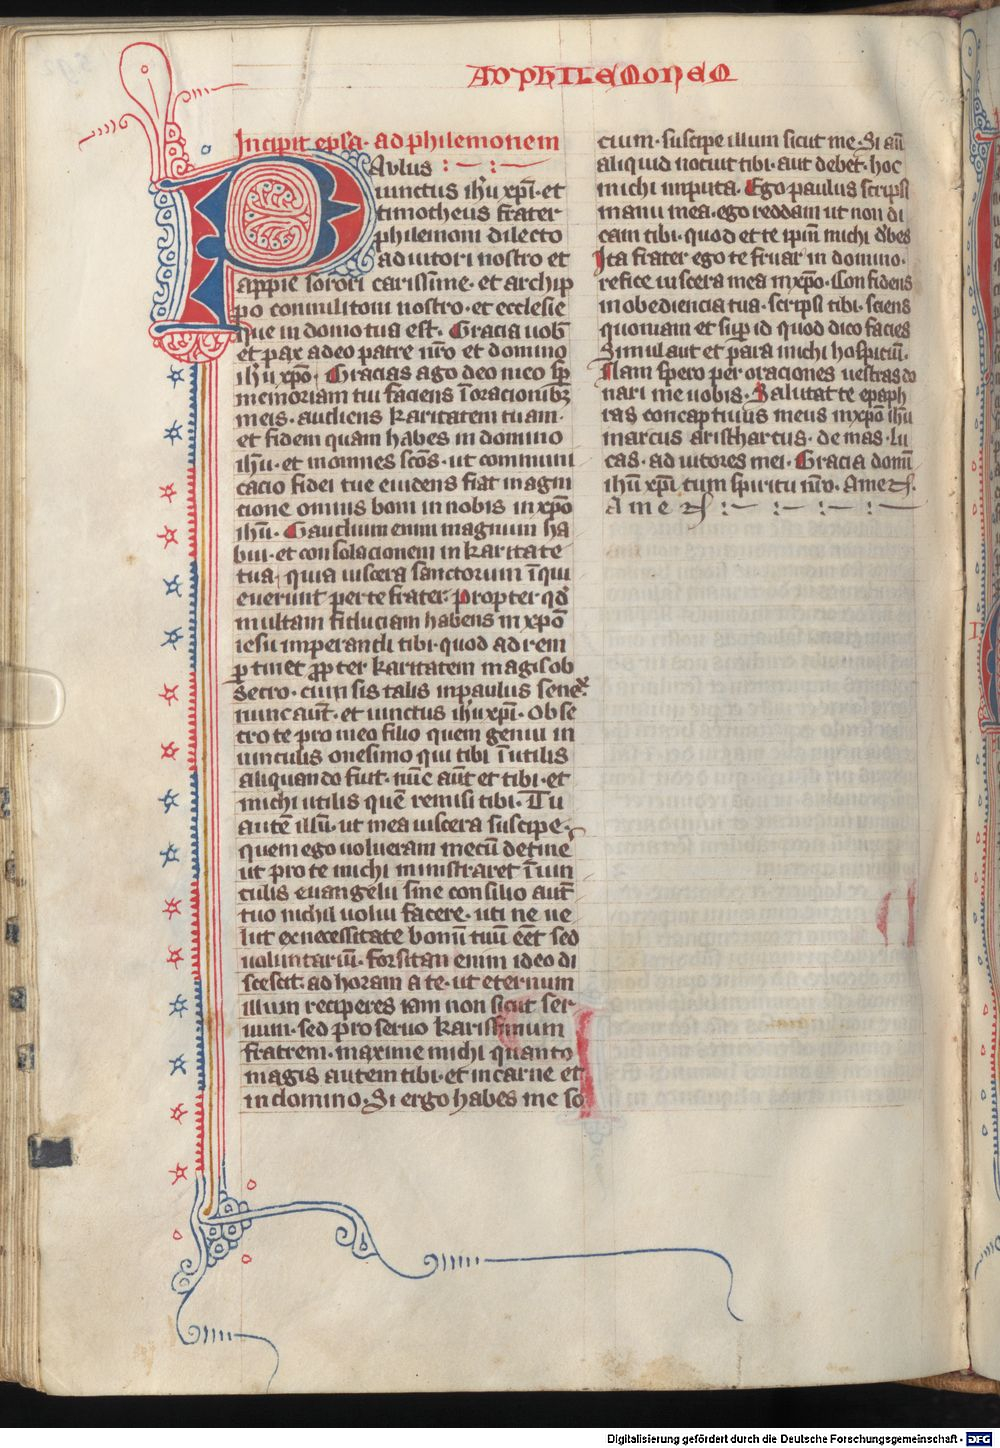 AD PHILEMONEM
Incipit epl̄a · ad philemonem
PAulus : — · : —
iunctus ih̄u xp̄i · et
timotheus frater
philemoni dilecto
adiutori nostro et
appie sorori carissime · et archip
po commilitoni nostro · et ecclesie
que in domo tua est · Gracia uob̄
et pax a deo patre nr̄o et domino
ih̄u xp̄o · Gracias ago deo meo sp̄
memoriam tui faciens ī oracionibꝫ
meis · audiens karitatem tuam ·
et fidem quam habes in domino
ih̄u · et in omnes sc̄os · ut communi
cacio fidei tue euidens fiat in agni
cione omnis boni in nobis in xp̄o
ih̄u · Gaudium enim magnum ha
bui · et consolacionem in karitate
tua · quia uiscera sanctorum ī qui
euerunt per te frater · propter qd̄
multam fiduciam habens in xp̄o
iesu imperandi tibi · quod ad rem
ꝑtinet ꝓpter karitatem magis ob
secro · cum sis talis ut paulus senex
nunc aut̄ · et iunctus ih̄u xp̄i · Obse
cro te pro meo filio quem genui in
uinculis onesimo qui tibi ī utilis
aliquando fuit · nūc aūt et tibi · et
michi utilis quē remisi tibi · Tu
autē illū · ut mea uiscera suscipe ·
quem ego uolueram mecū detinē
ut pro te michi ministraret ī uin
culis euangelii sine consilio aut̄
tuo nichil uolui facere · uti ne ue
lut ex necessitate bonū tuū eēt sed
uoluntariū · forsitan enim ideo di
scescit · ad horam a te · ut eternum
illum reciperes iam non sicut ser
uum · sed pro seruo karissimum
fratrem · maxime michi quanto
magis autem tibi · et in carne et
in domino · Si ergo habes me so
cium · suscipe illum sicut me Si aūt
aliquid nocuit tibi · aut debet · hoc
michi imputa · Ego paulus scripsi
manu mea · ego reddam ut non di
cam tibi · quod et te ip̄m michi debes
Ita frater ego te fruar in domino ·
refice uiscera mea in xp̄o · Confidens
in obediencia tua · scripsi tibi · sciens
quoniam et suꝑ id quod dico facies
Simul aut et para michi hospiciū ·
Nam spero per oraciones uestras do
nari me uobis · Salutat te epaph
ras concaptiuus meus in xp̄o ih̄u
marcus aristhartus · demas · lu
cas · adiutores mei · Gracia domī
ih̄u xp̄i cum spiritu nr̄o · Amen ·
Amen : — · : — · : —
Digitalisierung gefördert durch die Deutsche Forschungsgemeinschaft - DFG